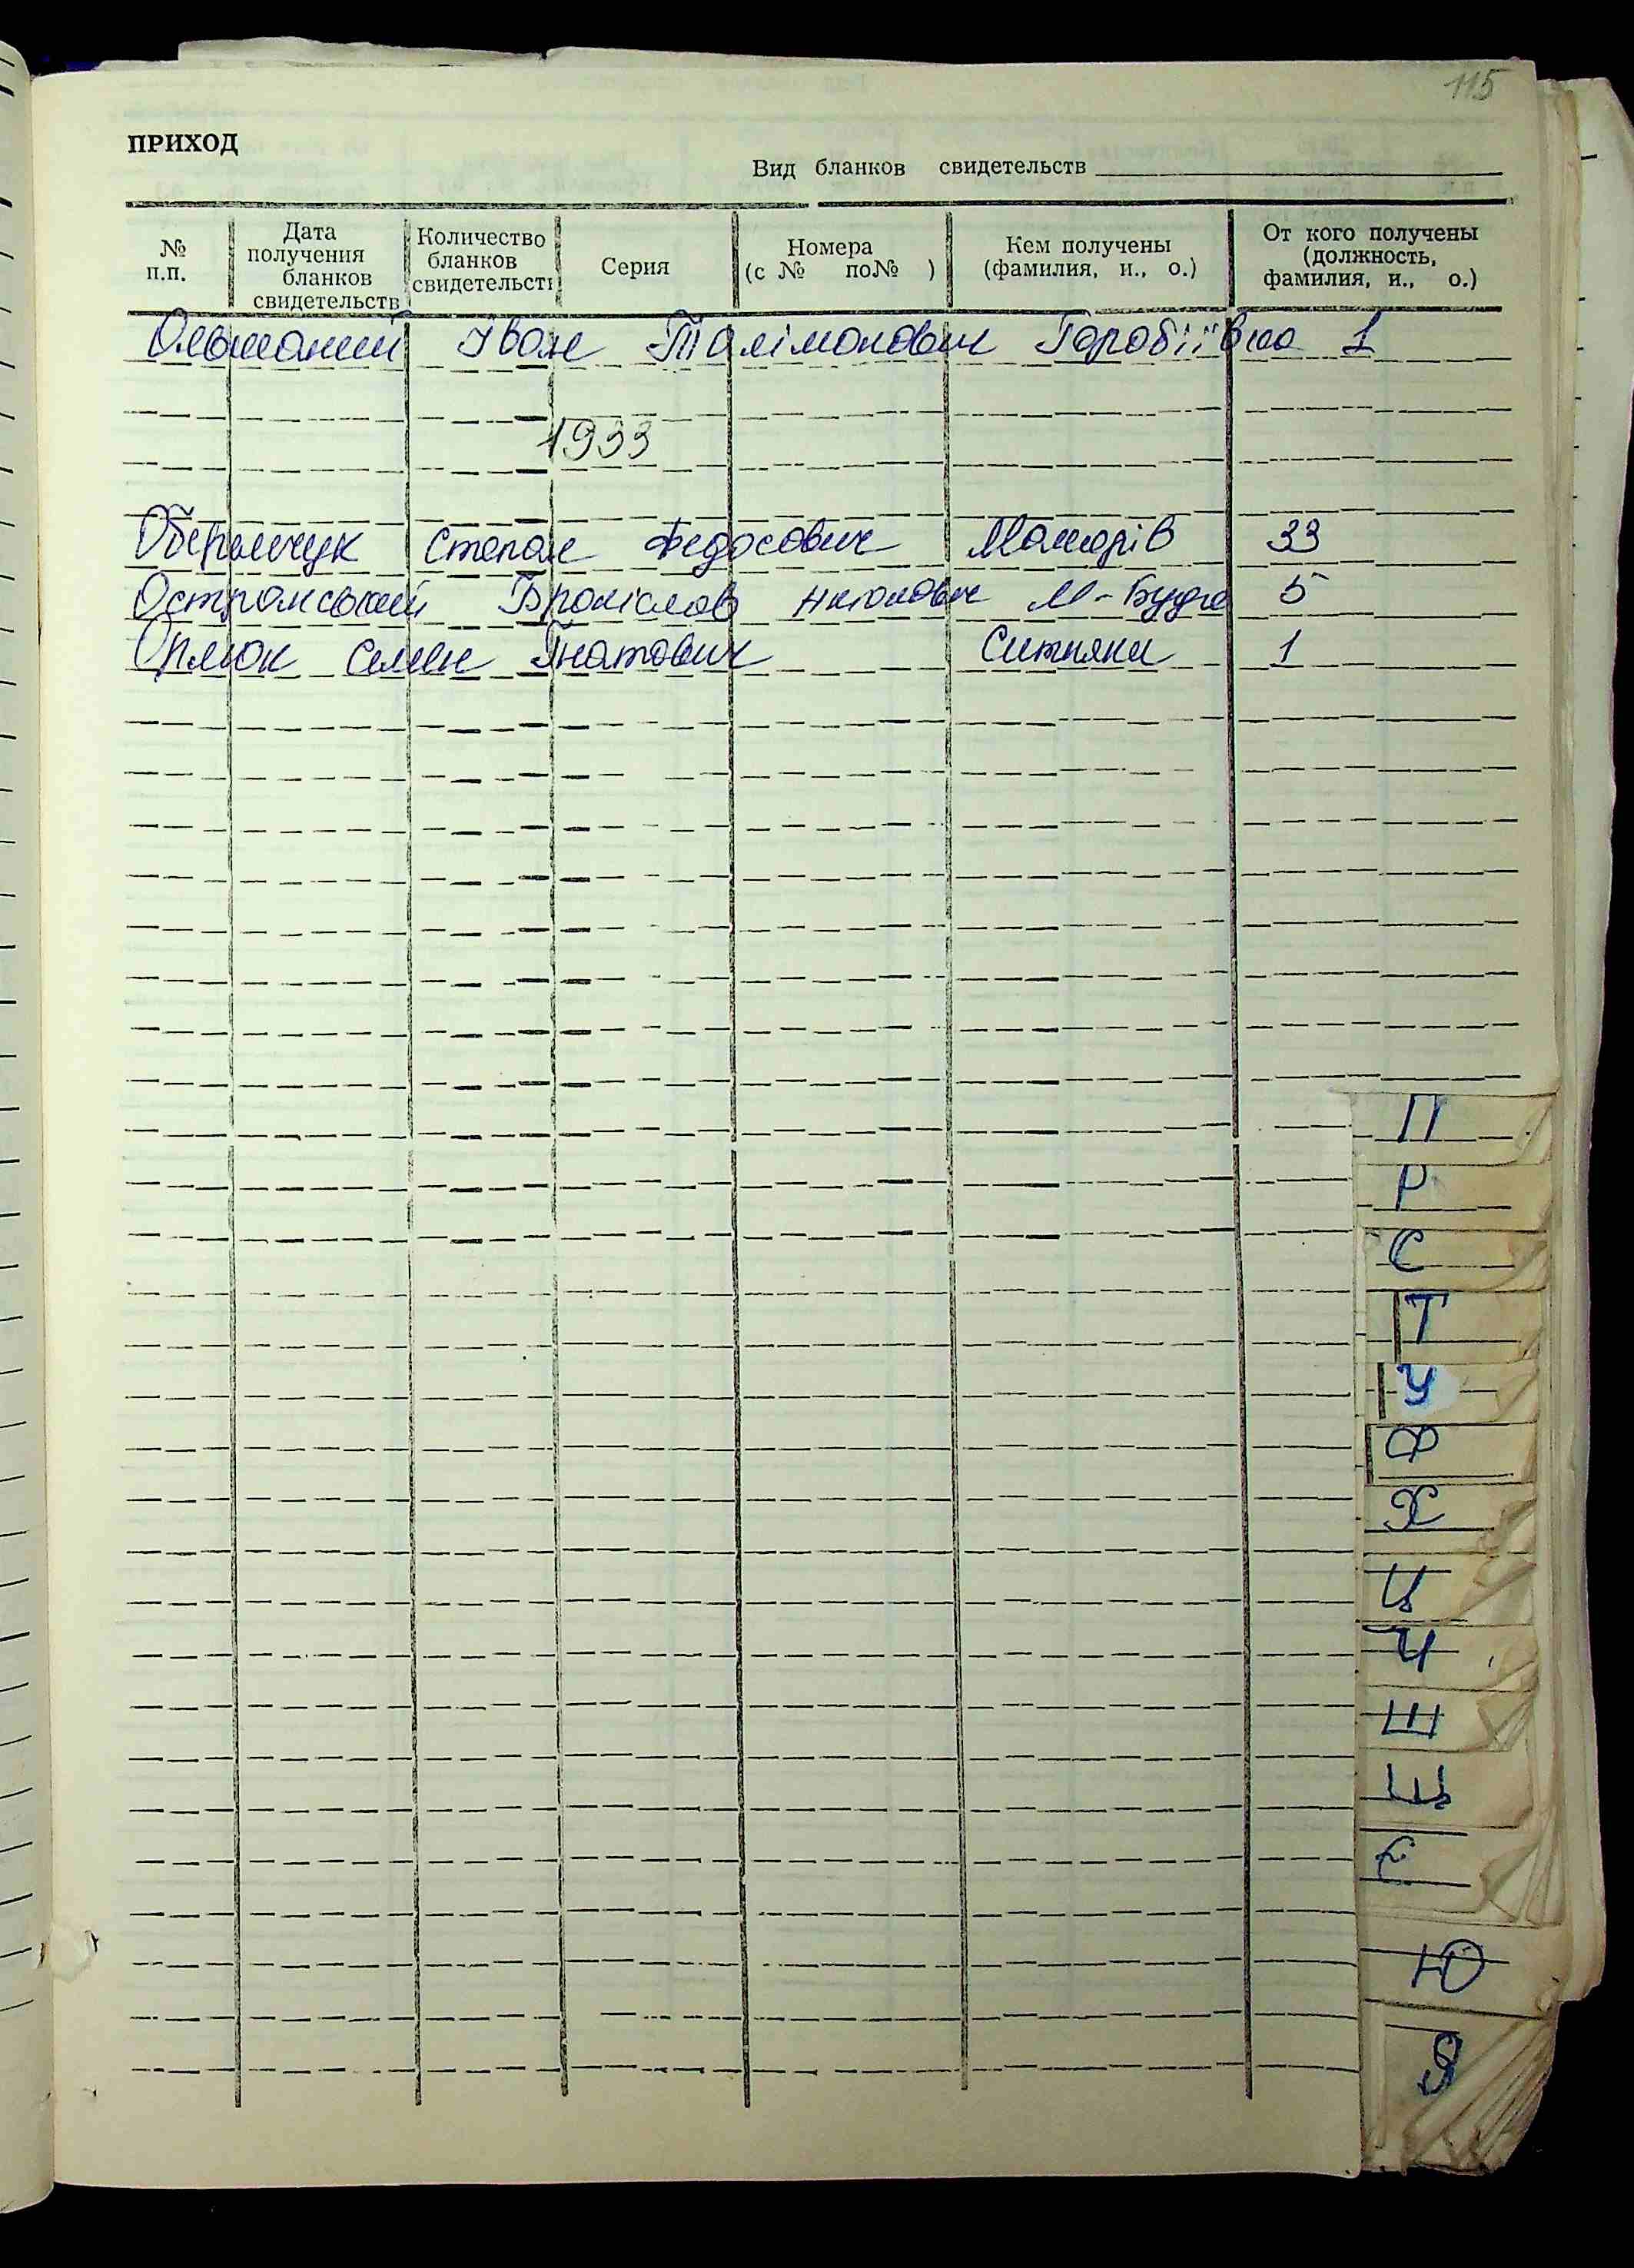 115
ПРИХОД
Вид бланков свидетельств
№ п.п.
Дата получения бланков свидетельств
Количество бланков свидетельств
Серия
Номера (с № по№ )
Кем получены (фамилия, и., о.)
От кого получены (должность, фамилия, и., о.)
Ольшаний Іван Талімонович Горобіївка 1
1933
Степан Федосович Макарів 33
Броніслав М-Буда 5
Орлюк Семен Гнатович Ситняки 1
П
Р
С
Т
У
Ф
Х
Ц
Ч
Ш
Щ
Є
Ю
Я